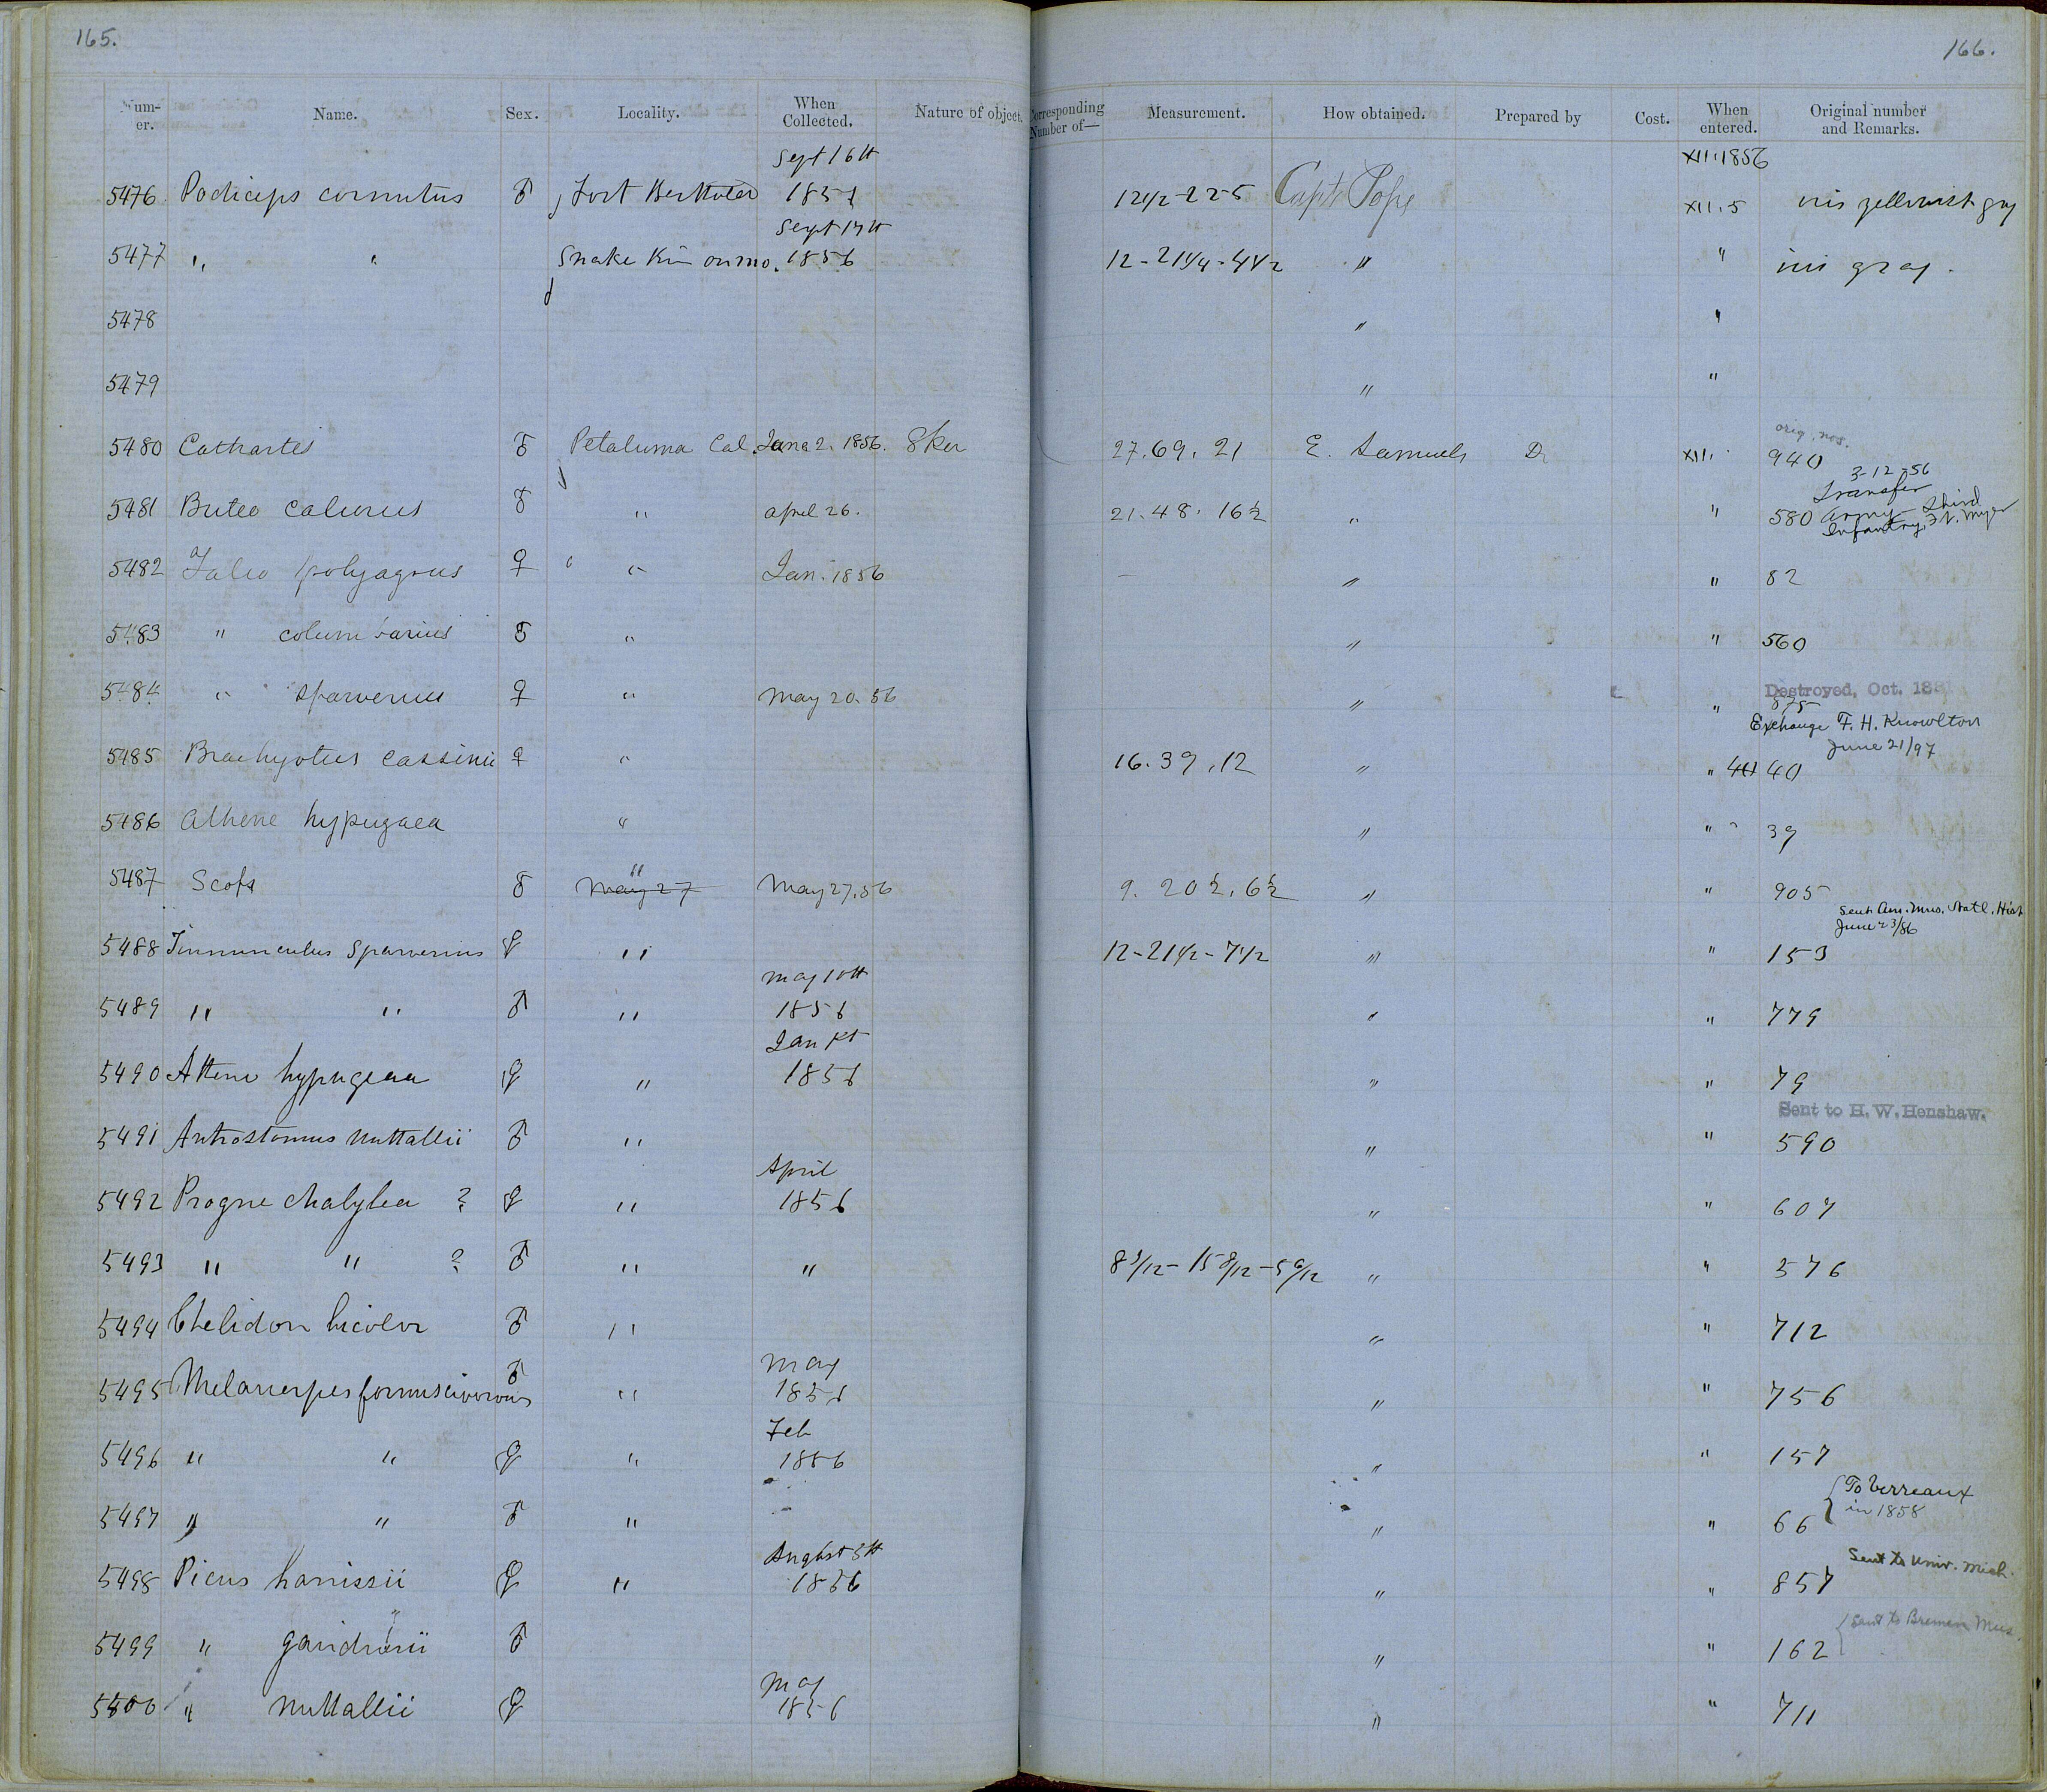 165.
166.
Num-
er.
Name.
Sex.
Locality.
When
Collected.
Nature of object.
Corresponding
Number of—
Measurement.
How obtained.
Prepared by
Cost.
When
entered.
Original number
and Remarks.
Sept 16th XII. 1856
5476 Podiceps cornutus ♂ Fort Berthold 1856 12 1/2-22-5 Capt Pope XII. 5 iris yellowish gray
Sept 17th
5477 " " Snake on mo. 1856 12-21 1/4-4 1/2 " " iris gray.
5478 " "
5479 " "
orig. nos.
5480 Cathartes ♂ Petaluma Cal. June 2. 1856. Sken 27. 69. 21 E. Samuels Dr XII. 940
3-12-56
Transfer
5481 Buteo calurus ♂ " april 26. 21. 48. 16 1/2 " " 580 Army Third
Infantry, Ft. Myer
5482 Falco polyagrus ♀ " Jan. 1856 — " " 82
5483 " columbarius ♂ " " " 560
Destroyed, Oct. 188
5484 " sparverius ♀ " May 20. 56 " " 875
Exchange F. H. Knowlton
June 21/97
5485 Brachyotus cassinii ♀ " 16. 39. 12 " " 40 40
5486 Athene hypugaea " " " 39
5487 Scops ♂ " May 27 May 27. 56 9. 20 1/2. 6 1/2 " " 905
Sent Am. Mus. Natl. Hist
June 23/86
5488 Tinnunculus sparverius ♀ " 12-21 1/2-7 1/2 " " 153
May 10th
5489 " " ♂ " 1856 " " 779
Jan 1st
5490 Athene hypugaea ♀ " 1856 " " 79
Sent to H. W. Henshaw.
5491 Antrostomus nuttallii ♂ " " " 590
April
5492 Progne chalybea ? ♀ " 1856 " " 607
5493 " " ? ♂ " " " " 576
5494 Chelidon bicolor ♂ " " " 712
May
5495 Melanerpes formicivorous ♂ " 1856 " " 756
Feb
5496 " " ♀ " 1856 " " 157
To Verreaux
in 1858
5497 " " ♂ " " " 66
August 5th
Sent to Univ. Mich.
5498 Picus harrissii ♀ " 1856 " " 857
Sent to Bremen Mus.
5499 " gairdnerii ♂ " " 162
May
5500 " nuttallii ♀ 1856 " " 711